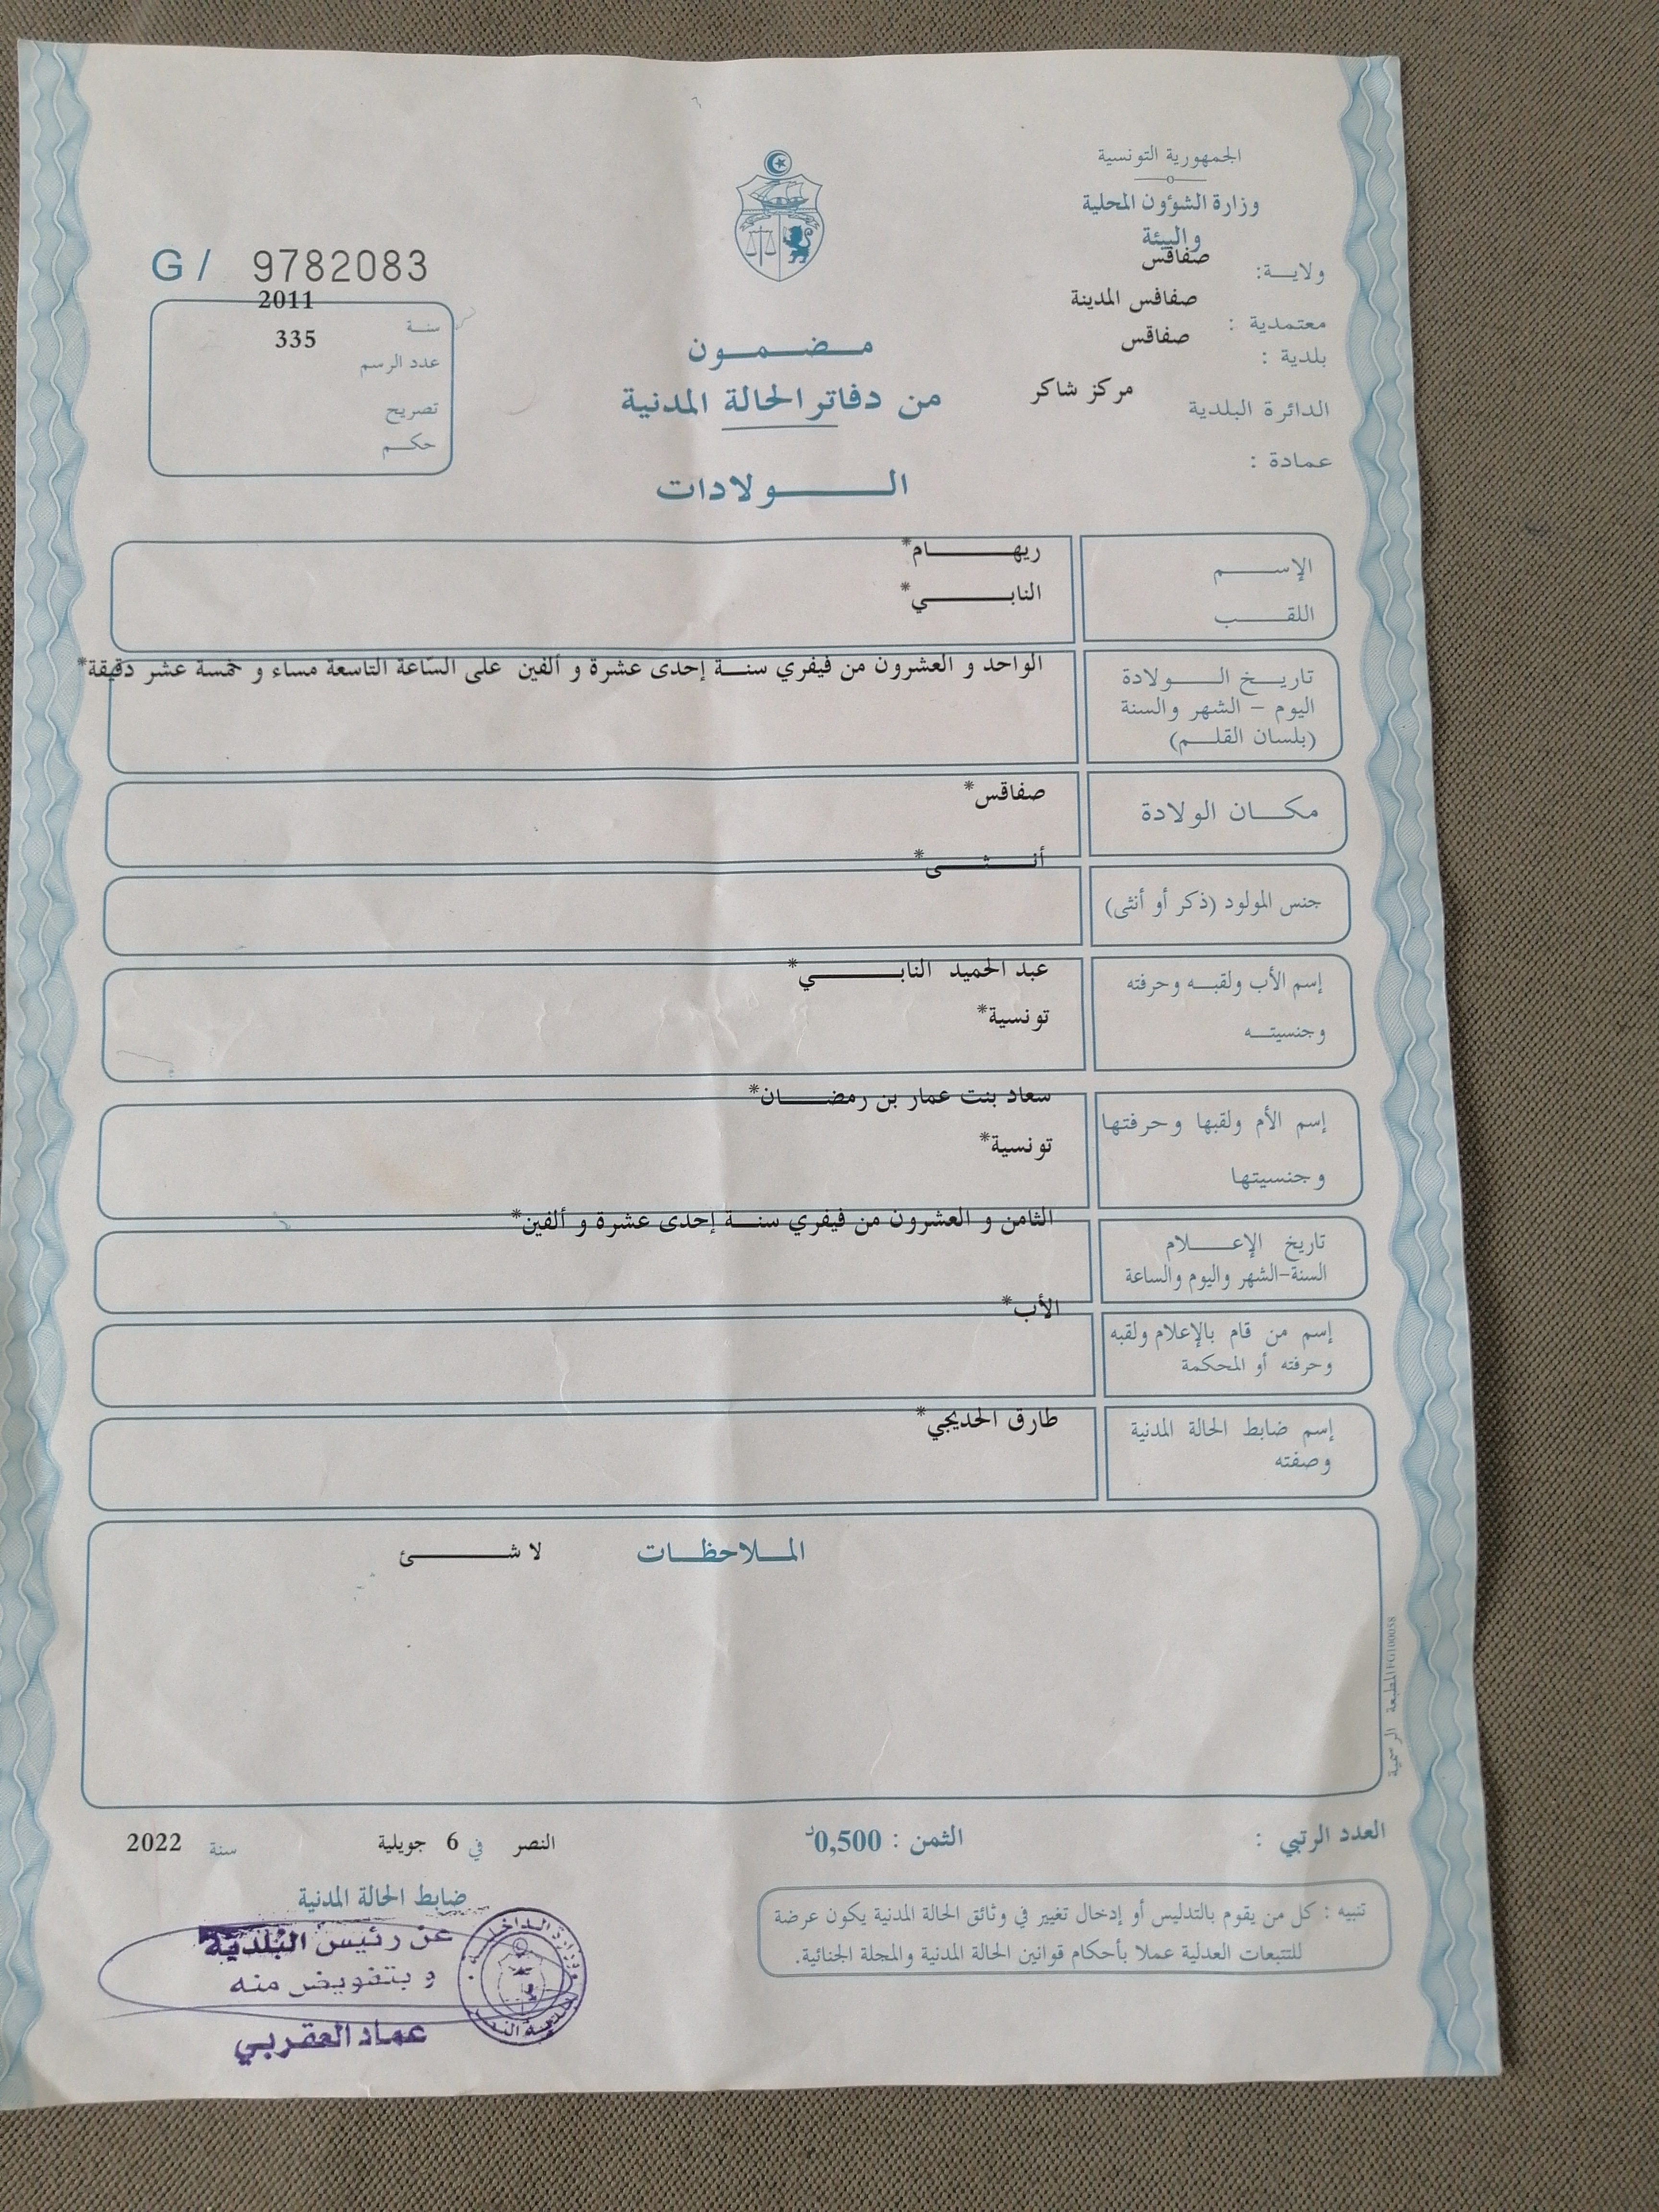 الجمهورية التونسية
وزارة الشؤون المحلية
والبيئة
ولاية: صفاقس
معتمدية : صفاقس المدينة
بلدية : صفاقس
الدائرة البلدية مركز شاكر
عمادة :
G/ 9782083
سنة 2011
عدد الرسم 335
تصريح
حكم
مضمون
من دفاتر الحالة المدنية
الولادات
الإسم ريهام*
اللقب النابي*
تاريخ الولادة
اليوم - الشهر والسنة
(بلسان القلم)
الواحد و العشرون من فيفري سنة إحدى عشرة و ألفين على السّاعة التاسعة مساء و خمسة عشر دقيقة*
مكان الولادة صفاقس*
جنس المولود (ذكر أو أنثى) أنثى*
إسم الأب ولقبه وحرفته
وجنسيته
عبد الحميد النابي*
تونسية*
إسم الأم ولقبها وحرفتها
وجنسيتها
سعاد بنت عمار بن رمضان*
تونسية*
تاريخ الإعلام
السنة-الشهر واليوم والساعة
الثامن و العشرون من فيفري سنة إحدى عشرة و ألفين*
إسم من قام بالإعلام ولقبه
وحرفته أو المحكمة
الأب*
إسم ضابط الحالة المدنية
وصفته
طارق الحديجي*
الملاحظات لا شئ
المطبعة الرسمية FG100058
العدد الرتبي :
الثمن : 0,500د
النصر في 6 جويلية سنة 2022
ضابط الحالة المدنية
تنبيه : كل من يقوم بالتدليس أو إدخال تغيير في وثائق الحالة المدنية يكون عرضة
للتتبعات العدلية عملا بأحكام قوانين الحالة المدنية والمجلة الجنائية.
عن رئيس البلدية
و بتفويض منه
عماد العقربي